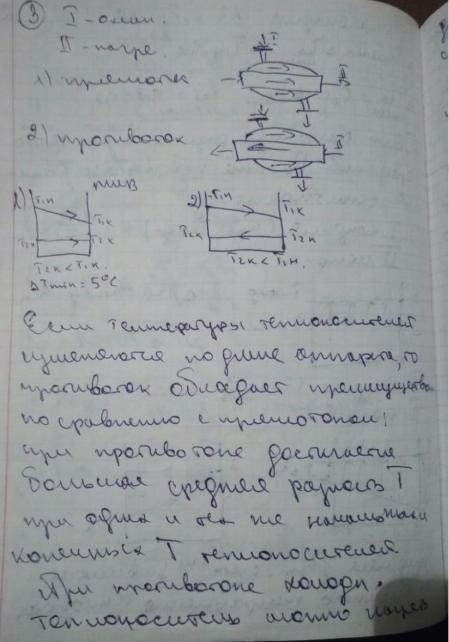 3 I - охлаж.
II - нагре.
I
1) прямоток
II
2) противоток
II
пшв
1) T1н
2) T1к
T1к
T2н T2к
T2к T2н
T2к < T1к.
T2к < T1н.
ΔTmin = 5°C
Если температуры теплоносителей
изменяются по длине аппарата, то
противоток обладает преимуществом
по сравнению с прямотоком:
при противотоке достигается
большая средняя разность T
при одних и тех же начальных и
конечных T теплоносителей.
При противотоке холодн.
теплоноситель можно нагрев